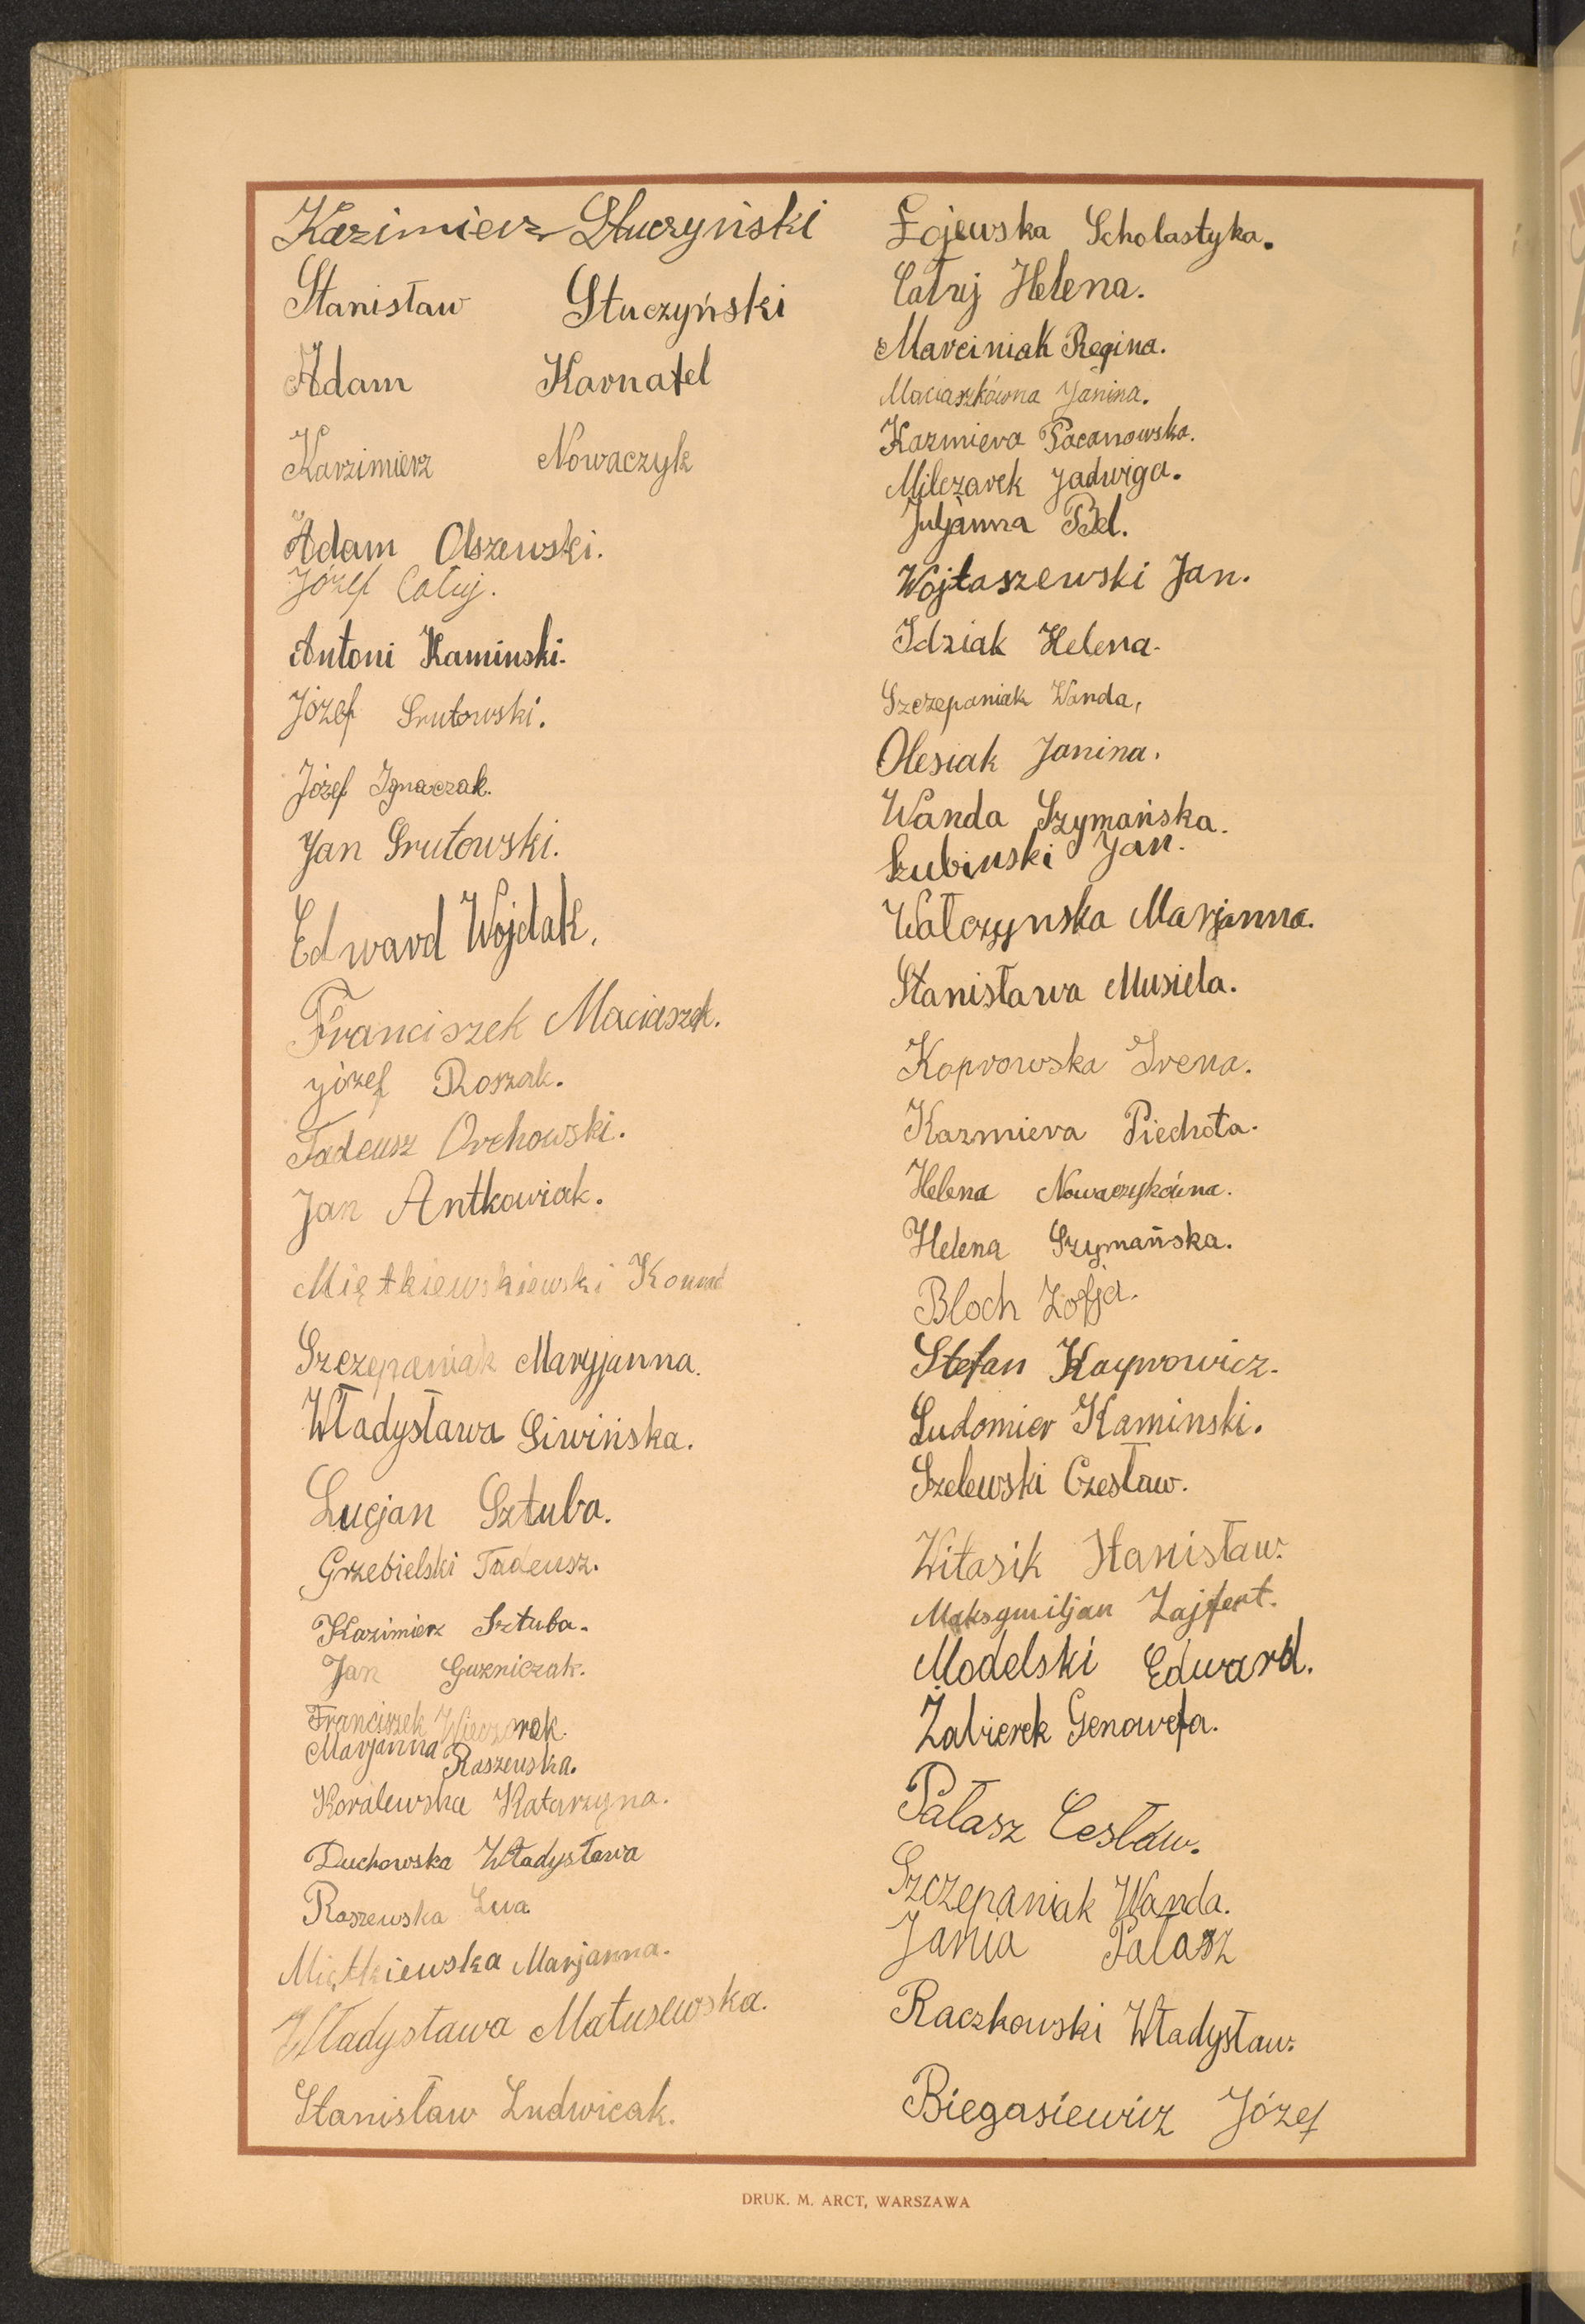 Kazimierz Słuczyński
Stanisław Słuczyński
Adam Karnatel
Karzimierz Nowaczyk
Adam Olszewski.
Józef Całuj.
Antoni Kaminski.
Józef Srutowski.
Józef Ignaczak.
Jan Srutowski.
Edward Wojdak.
Franciszek Maciaszek.
józef Roszak.
Tadeusz Orchowski.
Jan Antkowiak.
Miętkiewskiewski Konrad
Szczepaniak Maryjanna.
Władysława Siwińska.
Lucjan Sztuba.
Grzebielski Tadeusz.
Kazimierz Sztuba.
Jan Guzniczak.
Franciszek Wieczorek.
Marjanna Raszewska.
Koralewska Katarzyna.
Duchowska Władysława
Raszewska
Miętkiewska Marjanna.
Władysława Matusewska.
Stanisław Ludwicak.
Łojewska Scholastyka.
Całuj Helena.
Marciniak Regina.
Maciaszkówna Janina.
Kazmiera Pacanowska.
Milczarek Jadwiga.
Juljanna Bel.
Wojtaszewski Jan.
Idziak Helena.
Szczepaniak Wanda,
Olesiak Janina.
Wanda Szymańska.
Łubinski Jan.
Wałczynska Marjanna.
Stanisława Musiela.
Koprowska Irena.
Kazmiera Piechota.
Helena Nowaczykówna.
Helena Szymańska.
Bloch Zofja.
Stefan Kacprowicz.
Ludomier Kaminski.
Szelewski Czesław.
Witasik Stanisław.
Maksymiljan Zajfert.
Modelski Edward.
Żabierek Genowefa.
Pałasz Cesław.
Szczepaniak Wanda.
Jania Pałasz
Raczkowski Władysław.
Biegasiewicz Józef
DRUK. M. ARCT, WARSZAWA